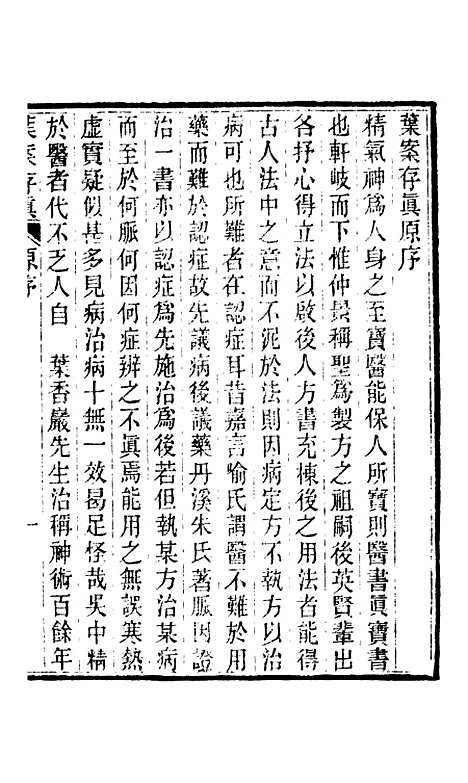 葉案存眞原序
精氣神爲人身之至寶醫能保人所寶則醫書眞寶書
也軒岐而下惟仲景稱聖爲製方之祖嗣後英賢輩出
各抒心得立法以啟後人方書充棟後之用法者能得
古人法中之意而不泥於法則因病定方不執方以治
病可也所難者在認症耳昔嘉言喻氏謂醫不難於用
藥而難於認症故先議病後議藥丹溪朱氏著脈因證
治一書亦以認症爲先施治爲後若但執某方治某病
而至於何脈何因何症辨之不眞焉能用之無誤寒熱
虛實疑似甚多見病治病十無一效曷足怪哉吳中精
於醫者代不乏人自　葉香巖先生治稱神術百餘年
葉案存眞　原序　一